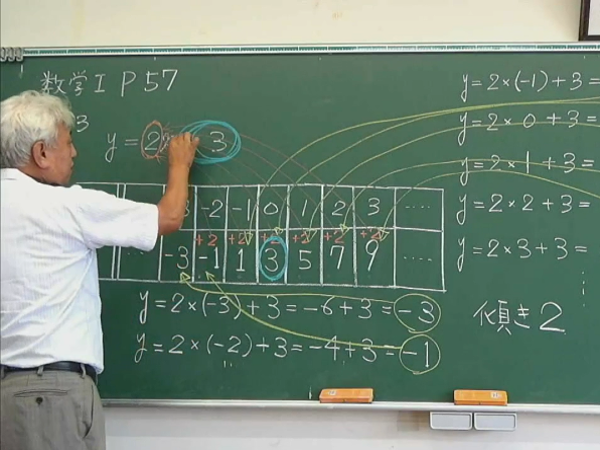 数学I P57
3
y = 2x 3
3 -2 -1 0 1 2 3 ....
+2 +2 +2 +2 +2 +2
... -3 -1 1 3 5 7 9 ....
y = 2×(-3)+3 = -6+3 = -3
y = 2×(-2)+3 = -4+3 = -1
y = 2×(-1)+3 =
y = 2×0+3 =
y = 2×1+3 =
y = 2×2+3 =
y = 2×3+3 =
傾き2